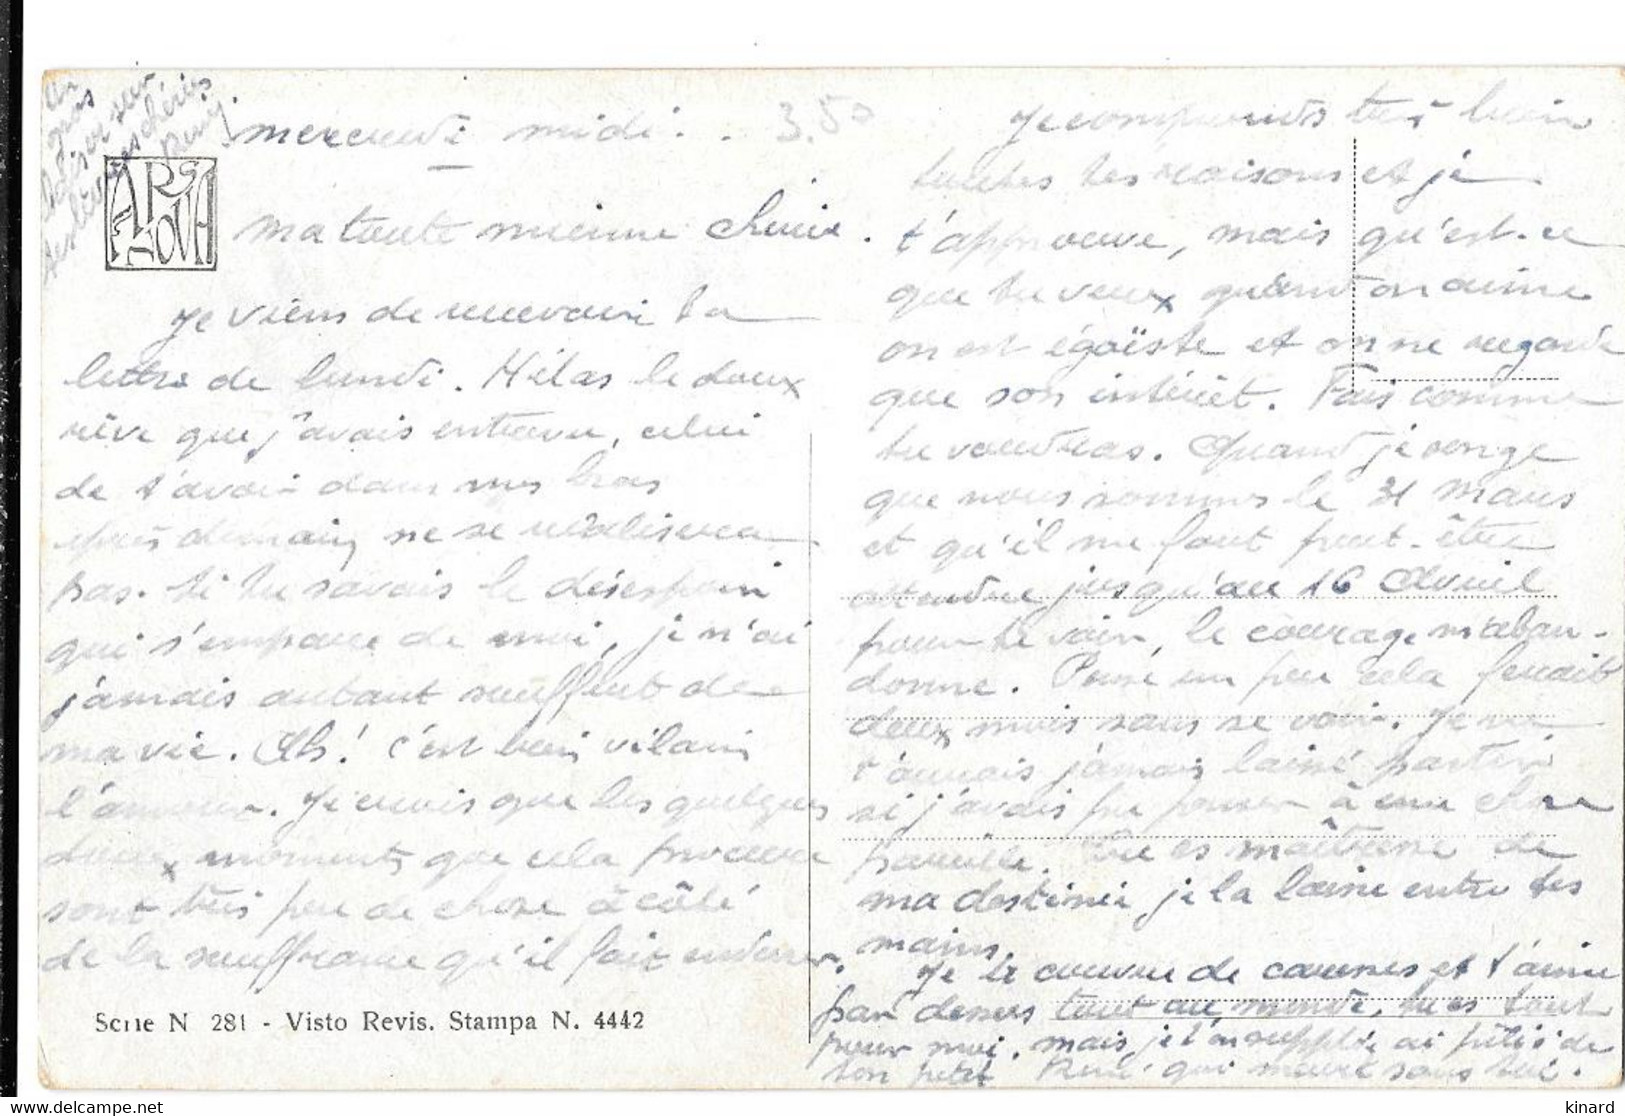 un
gros
baiser sur
tes lèvres chéries
René
mercredi midi. 3.50
ARS
NOVA
ma toute mienne chérie.
Je viens de recevoir ta
lettre de lundi. Hélas le doux
rêve que j'avais entrevu, celui
de t'avoir dans mes bras
après demain, ne se réalisera
pas. Si tu savais le désespoir
qui s'empare de moi, je n'ai
jamais autant souffert de
ma vie. Ah! c'est bien vilain
l'amour. Je crois que les quelques
doux moments que cela procure
sont très peu de chose à côté
de la souffrance qu'il fait endurer.
Serie N 281 - Visto Revis. Stampa N. 4442
Je comprends très bien
toutes tes raisons et je
t'approuve, mais qu'est-ce
que tu veux quand on aime
on est égoïste et on ne regarde
que son intérêt. Fais comme
tu voudras. Quand je songe
que nous sommes le 31 mars
et qu'il me faut peut-être
attendre jusqu'au 16 Avril
pour te voir, le courage m'aban-
donne. Pense un peu cela ferait
deux mois sans se voir. Je ne
t'aurais jamais laissé partir
si j'avais pu penser à une chose
pareille. Tu es maîtresse de
ma destinée je la laisse entre tes
mains.
Je te couvre de caresses et t'aime
par dessus tout au monde, tu es tout
pour moi, mais je t'en supplie ai pitié de
ton petit René qui meurt sans toi.
kinard